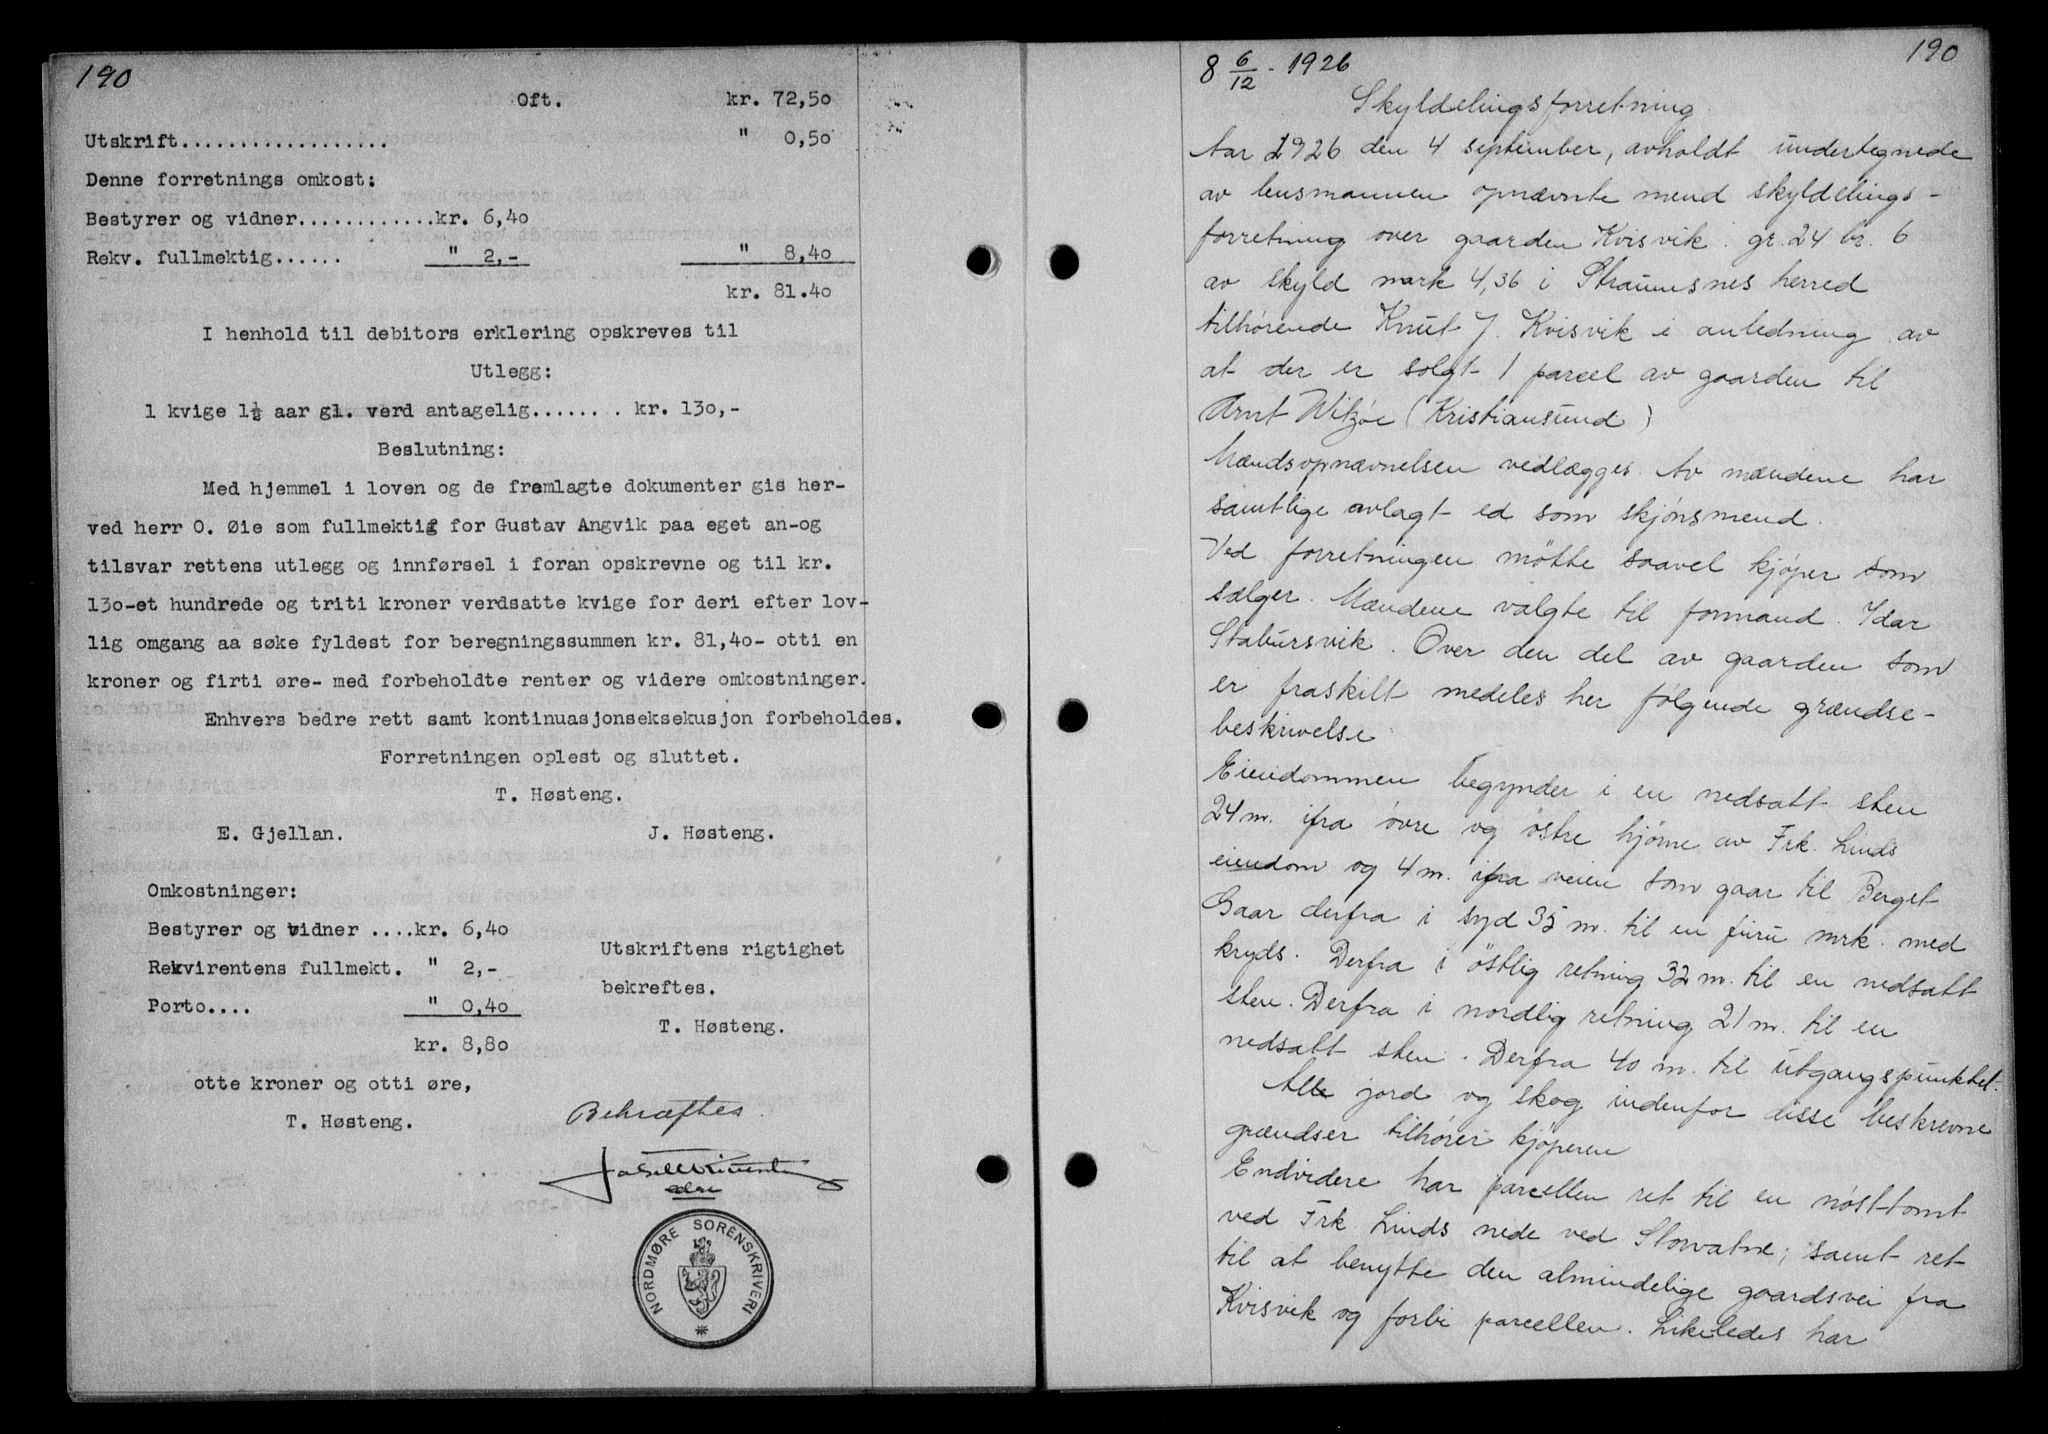 190
Oft. kr. 72,50
Utskrift.................. " 0,50
Denne forretnings omkost:
Bestyrer og vidner............kr. 6,40
Rekv. fullmektig...... " 2,- " 8,40
kr. 81.40
I henhold til debitors erklering opskreves til
Utlegg:
1 kvige 1½ aar gl. verd antagelig........ kr. 130,-
Beslutning:
Med hjemmel i loven og de fremlagte dokumenter gis her-
ved herr O. Øie som fullmektig for Gustav Angvik paa eget an-og
tilsvar rettens utlegg og innførsel i foran opskrevne og til kr.
130-et hundrede og triti kroner verdsatte kvige for deri efter lov-
lig omgang aa søke fyldest for beregningssummen kr. 81,40- otti en
kroner og firti øre- med forbeholdte renter og videre omkostninger.
Enhvers bedre rett samt kontinuasjonseksekusjon forbeholdes.
Forretningen oplest og sluttet.
T. Høsteng.
E. Gjellan. J. Høsteng.
Omkostninger:
Bestyrer og vidner ....kr. 6,40
Rekvirentens fullmekt. " 2,-
Porto.... " 0,40
kr. 8,80
otte kroner og otti øre,
T. Høsteng.
Utskriftens rigtighet
bekreftes.
T. Høsteng.
Bekræftes.
NORDMØRE SORENSKRIVERI
190
8 6/12 - 1926
Skyldelingsforretning.
Aar 1926 den 4 september, avholdt undertegnede
av lensmannen opnævnte mend skyldelings-
forretning over gaarden Kvisvik. gr. 24 br. 6
av skyld mark 4,36 i Straumsnes herred
tilhørende Knut J. Kvisvik i anledning av
at der er solgt 1 parcel av gaarden til
Arnt Witzøe (Kristiansund)
Mændsopnævnelsen vedlægges. Av mændene har
samtlige avlagt ed som skjønsmend.
Ved forretningen møtte saavel kjøper som
sælger. Mændene valgte til formand. Idar
Stabursvik. Over den del av gaarden som
er fraskilt medeles her følgende grændse-
beskrivelse:
Eiendommen begynder i en nedsatt sten
24 m. ifra øvre og østre hjørne av Frk. Linds
eiendom og 4 m. ifra veien som gaar til Berget
Gaar derfra i syd 35 m. til en furu mrk. med
kryds. Derfra i østlig retning 32 m. til en nedsatt
sten. Derfra i nordlig retning 21 m. til en
nedsatt sten. Derfra 40 m. til utgangspunktet.
Alle jord og skog indenfor disse beskrevne
grændser tilhører kjøperen
Endvidere har parcellen ret til en nøsttomt
ved Frk. Linds nede ved Storvatne; samt ret
til at benytte den almindelige gaardsvei fra
Kvisvik og forbi parcellen. Likeledes har